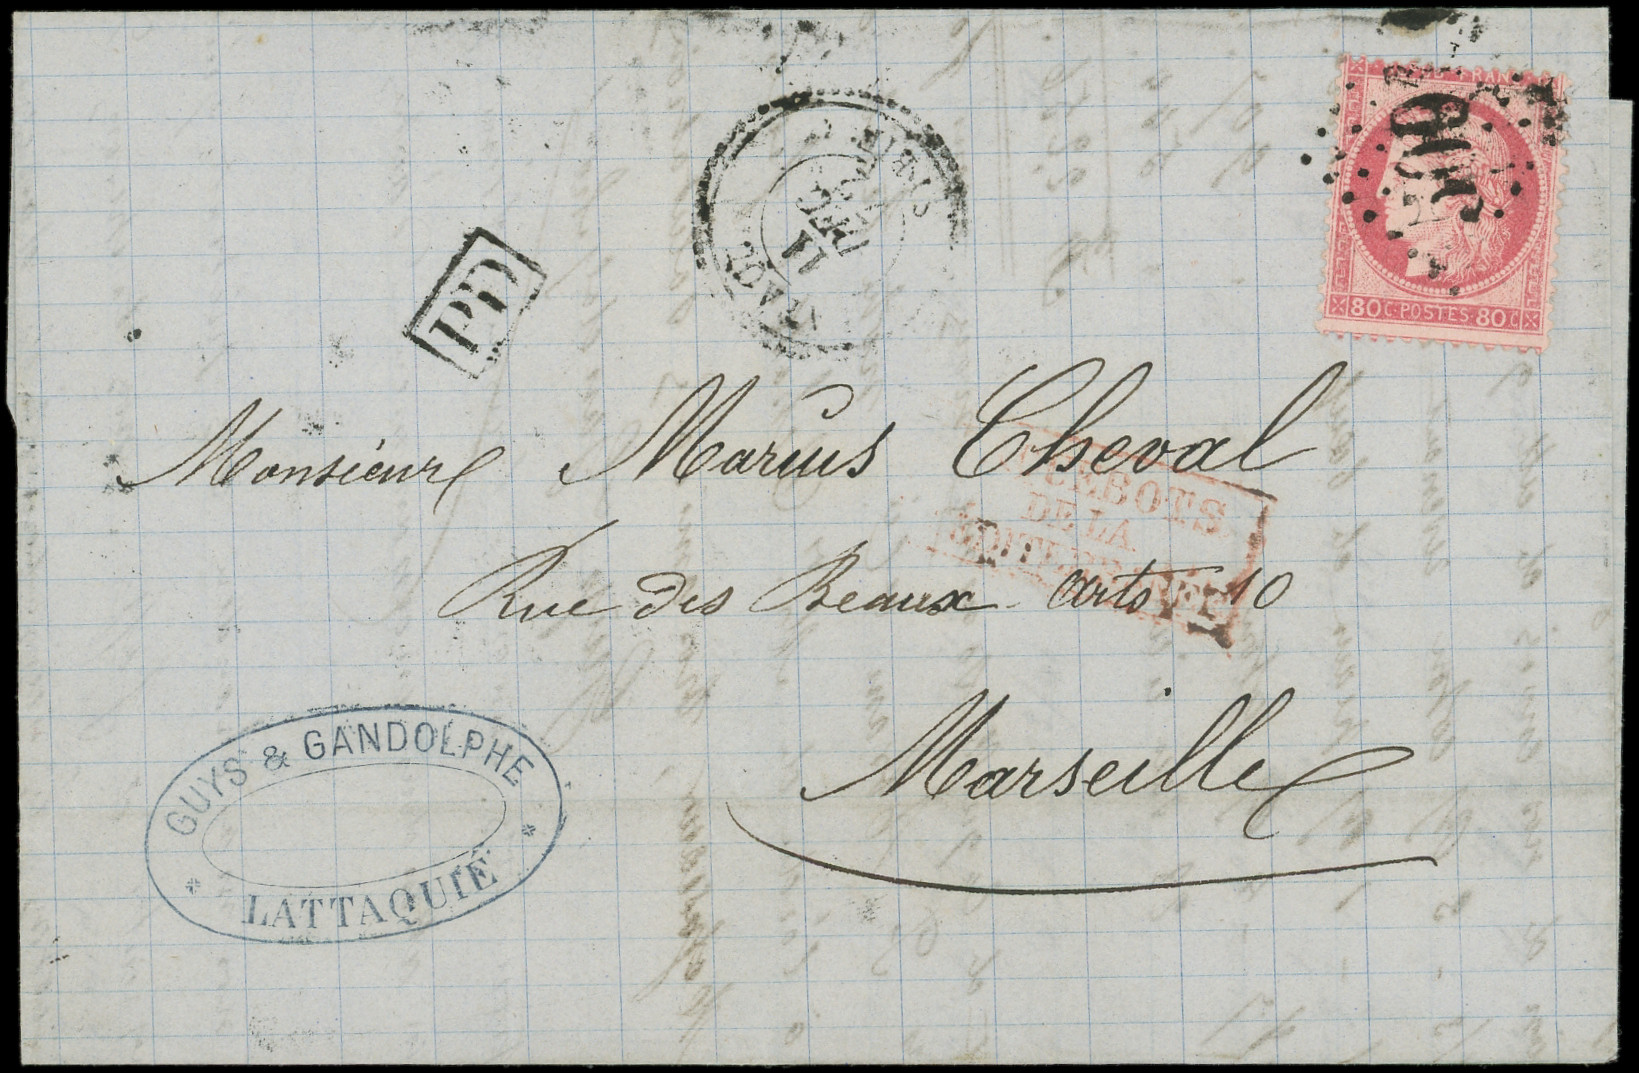 PD
LATTAQUIE SYRIE
11
DEC
80C·POSTES·80C
Monsieur Marius Cheval
PAQUEBOTS
DE LA
MEDITERRANEE
Rue des Beaux arts 10
Marseille
GUYS & GANDOLPHE
LATTAQUIÉ